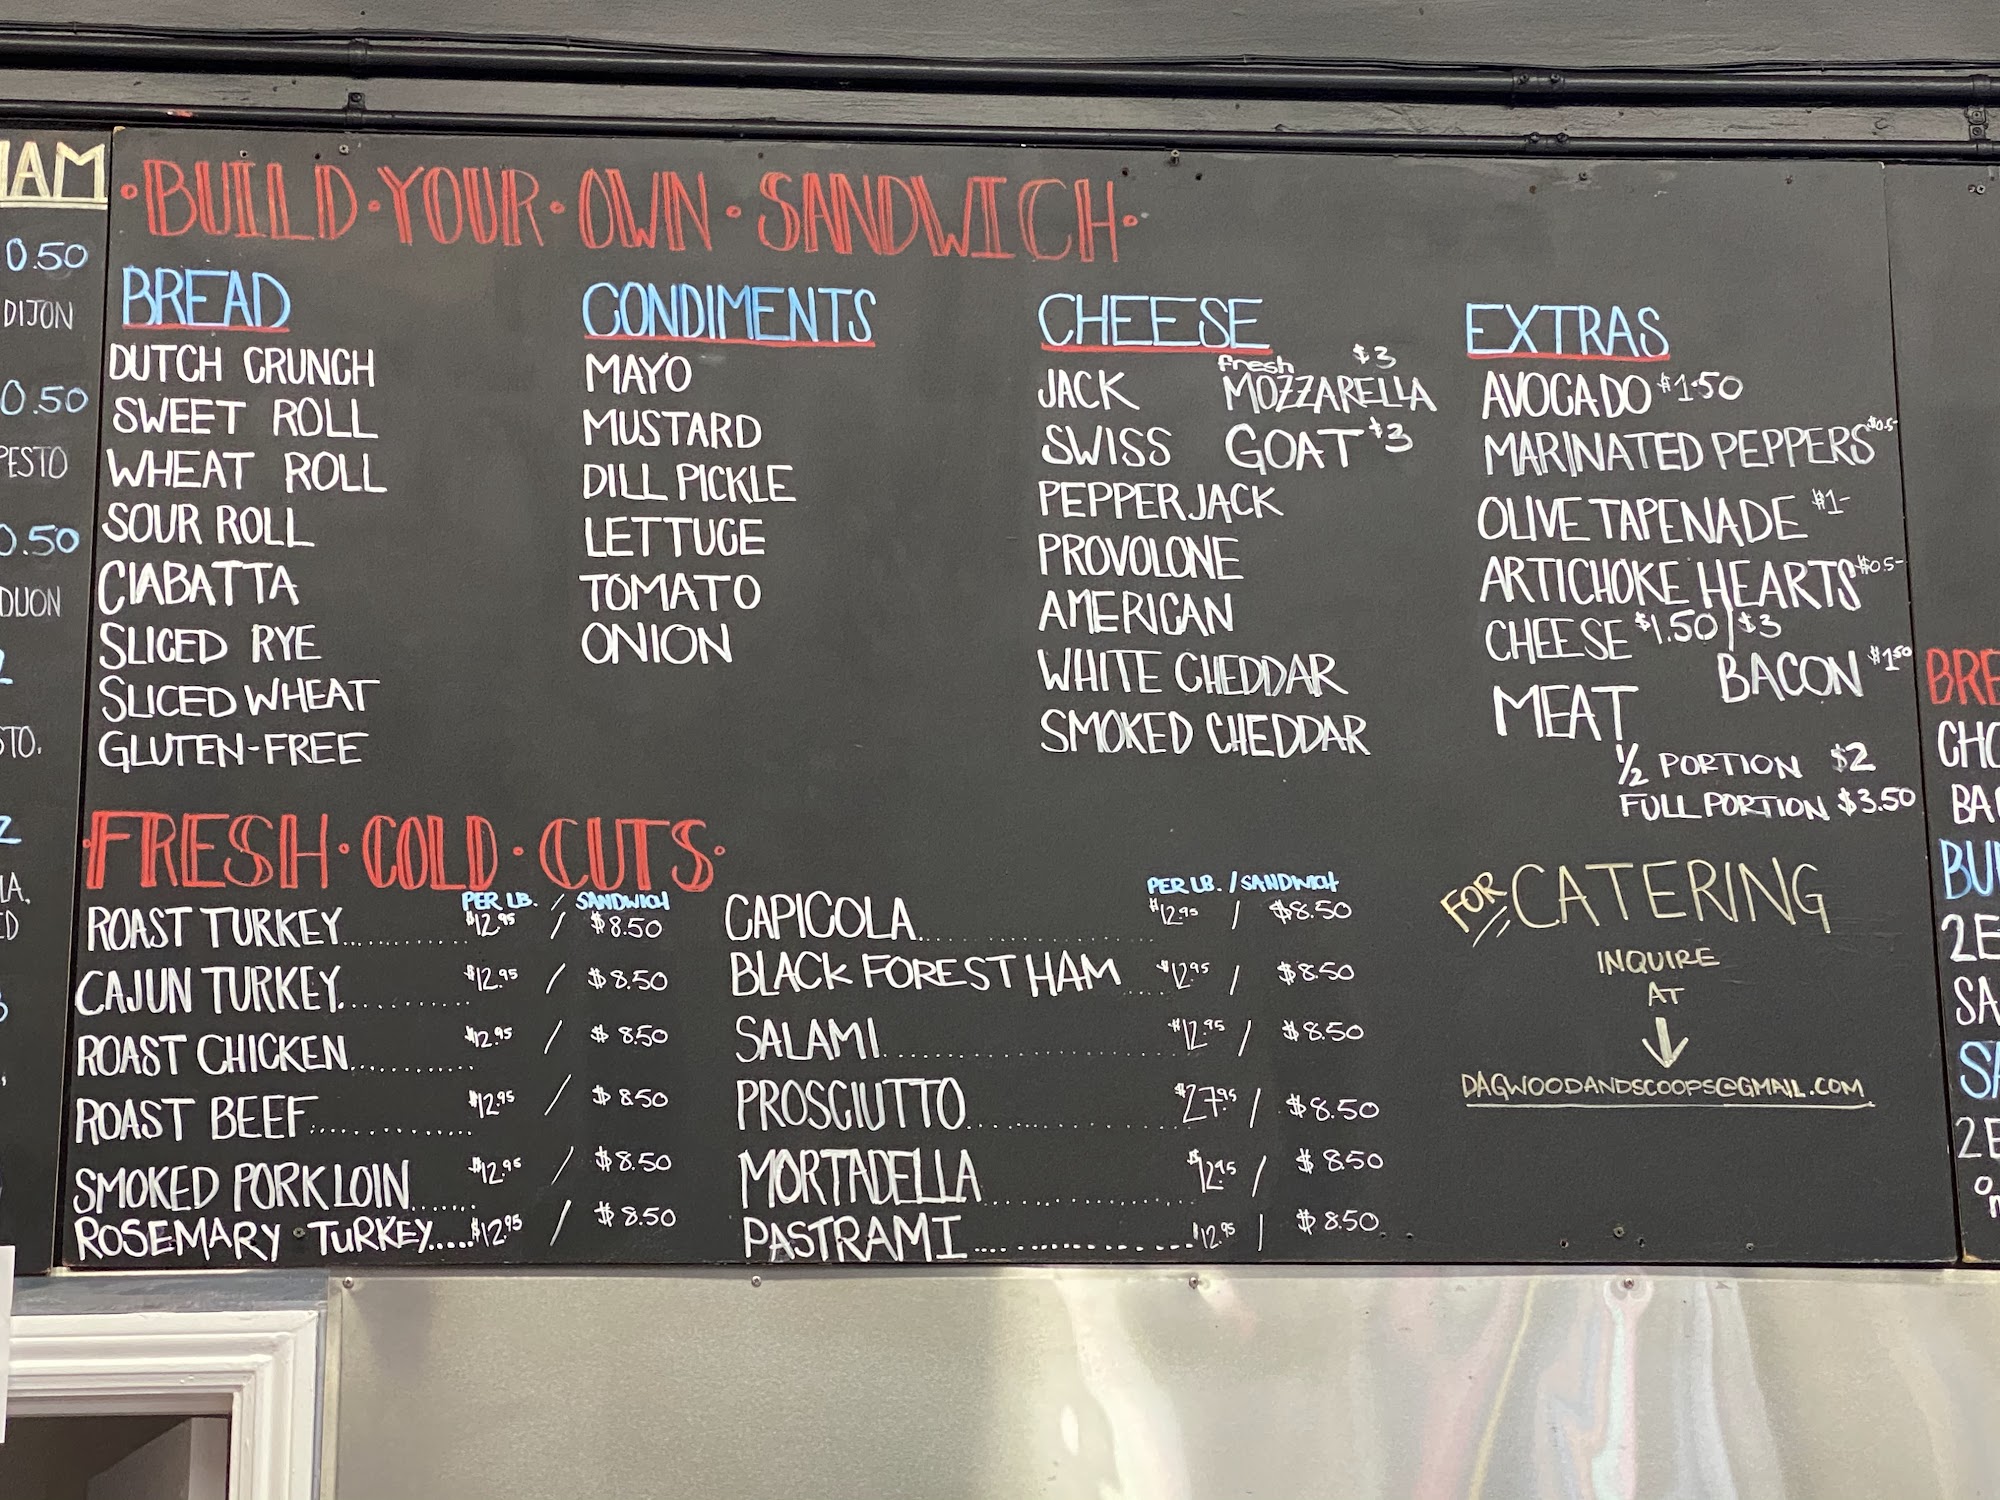 HAM
0.50
DIJON
0.50
PESTO
0.50
DIJON
STO.
·BUILD·YOUR·OWN·SANDWICH·
BREAD
DUTCH CRUNCH
SWEET ROLL
WHEAT ROLL
SOUR ROLL
CIABATTA
SLICED RYE
SLICED WHEAT
GLUTEN-FREE
CONDIMENTS
MAYO
MUSTARD
DILL PICKLE
LETTUCE
TOMATO
ONION
CHEESE
JACK
SWISS
PEPPER JACK
PROVOLONE
AMERICAN
WHITE CHEDDAR
SMOKED CHEDDAR
fresh $3
MOZZARELLA
GOAT $3
EXTRAS
AVOCADO $1.50
MARINATED PEPPERS $0.5-
OLIVE TAPENADE $1-
ARTICHOKE HEARTS $0.5-
CHEESE $1.50/$3
BACON $1.50
MEAT
1/2 PORTION $2
FULL PORTION $3.50
·FRESH·COLD·CUTS·
PER LB. / SANDWICH
ROAST TURKEY.......... $12.95 / $8.50
CAJUN TURKEY.......... $12.95 / $8.50
ROAST CHICKEN.......... $12.95 / $8.50
ROAST BEEF.............. $12.95 / $8.50
SMOKED PORK LOIN....... $12.95 / $8.50
ROSEMARY TURKEY..... $12.95 / $8.50
PER LB. / SANDWICH
CAPICOLA.................... $12.95 / $8.50
BLACK FOREST HAM .... $12.95 / $8.50
SALAMI........................ $12.95 / $8.50
PROSCIUTTO................. $27.95 / $8.50
MORTADELLA................ $12.95 / $8.50
PASTRAMI.................. $12.95 / $8.50
FOR CATERING
INQUIRE
AT
↓
DAGWOODANDSCOOPS@GMAIL.COM
BRE
CHO
BA
BU
2E
SA
SA
2E